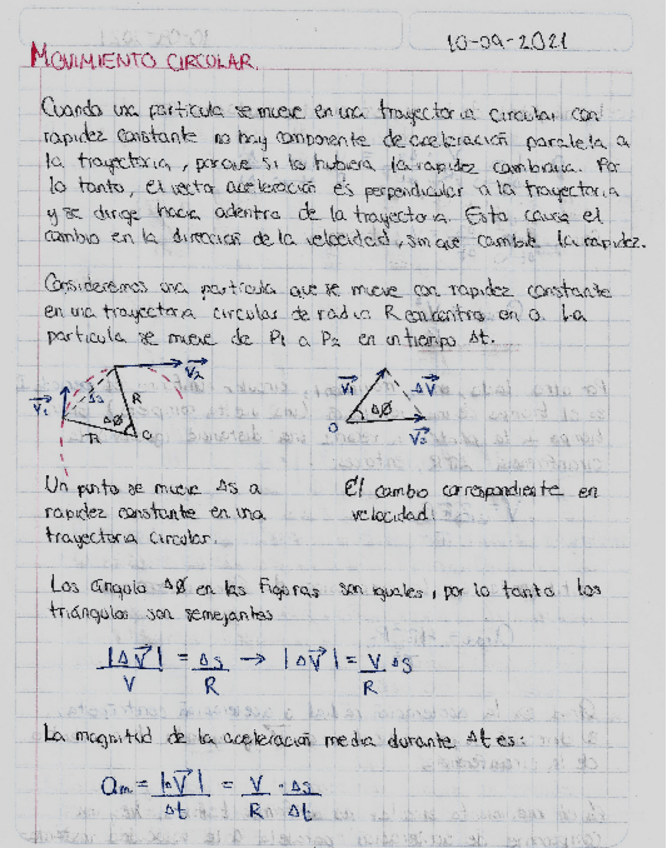 10-09-2021
MOVIMIENTO CIRCULAR.
Cuando una partícula se mueve en una trayectoria circular con
rapidez constante no hay componente de aceleración paralela a
la trayectoria, porque si la hubiera la rapidez cambiaria. Por
lo tanto, el vector aceleración es perpendicular a la trayectoria
y se dirige hacia adentro de la trayectoria. Esta causa el
cambio en la dirección de la velocidad, sin que cambie la rapidez.
Consideremos una partícula que se mueve con rapidez constante
en una trayectoria circular de radio R con centro en O. La
partícula se mueve de P₁ a P₂ en un tiempo Δt.
V⃗₂
Δs
R
V⃗₁
ΔØ
R
O
V⃗₁
ΔV⃗
ΔØ
O
V⃗₂
Un punto se mueve Δs a
rapidez constante en una
trayectoria circular.
El cambio correspondiente en
velocidad
Los ángulo ΔØ en las figuras son iguales, por lo tanto los
triángulos son semejantes
|ΔV⃗|/V = Δs/R → |ΔV⃗| = V/R Δs
La magnitud de la aceleración media durante Δt es:
am = |ΔV⃗|/Δt = V/R · Δs/Δt